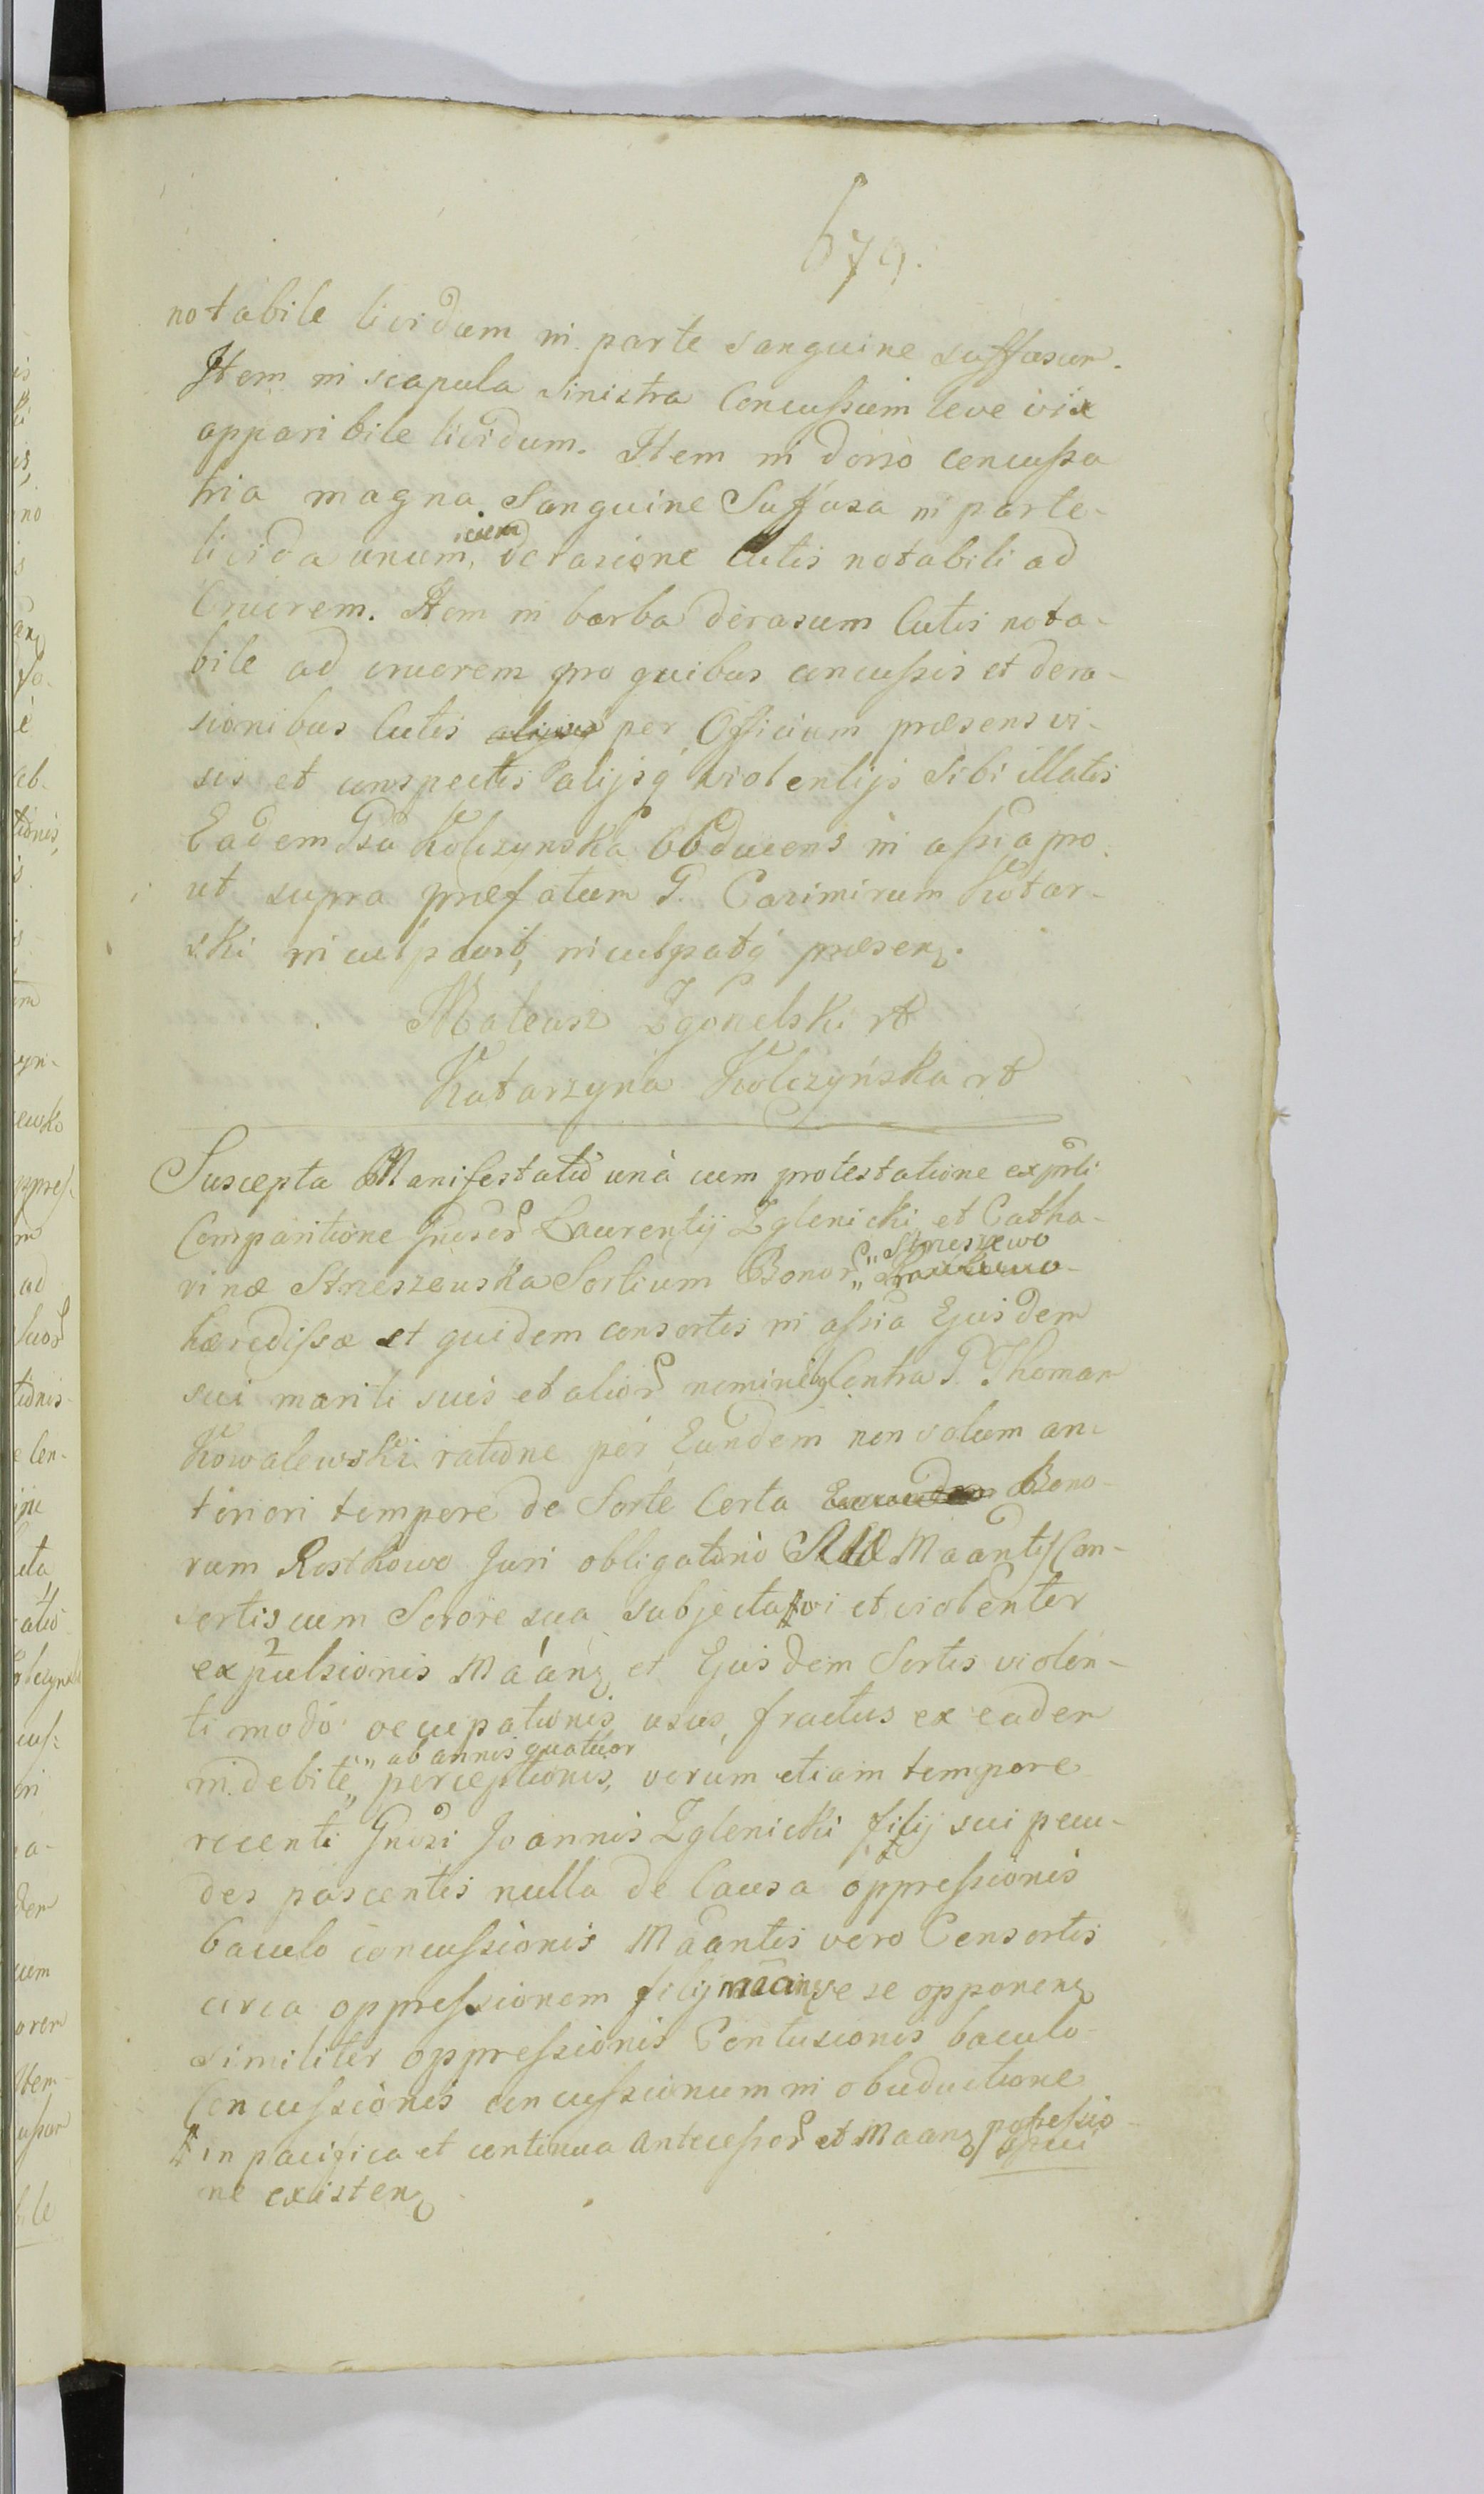 679.
notabile lividum in parte sanguine suffusum.
Item in scapula sinistra Concussum leve vix
apparibile lividum. Item in dorso concussa
tria magna Sanguine Suffusa in parte
livida unum, cum derasione Cutis notabili ad
Cruorem. Item in barba derasum Cutis nota-
bile ad cruorem pro quibus concussis et dera-
sionibus Cutis per Officium præsens vi-
sis et conspectis alijsq violentijs Sibi illatis
Eadem Gsa Kolczynska Obducens in assia pro
ut supra præfatum G. Casimirum Kotar-
ski inculpavit, inculpatq præsenz.
Mateusz Zgonelski rt
Katarzyna Kolczyńska rt
Suscepta Manifestatio unà cum protestatione ex psnli
Comparitione Gnosor Laurentij Zglenicki et Catha-
rinæ Strieszewska Sortium Bonor „Strieszewo
hæredissæ et quidem consortis in assia Ejusdem
sui mariti suis et alior nominibz Contra G. Thomam
Kowalewski ratione per Eundem non solum an-
teriori tempore de Sorte Certa Bono-
rum Rostkowo Juri obligatorio Maantis Con-
sortis cum Sorore sua subjecta vi et violenter
expulsionis Maanz et Ejusdem Sortis violen-
ti modo occupationis usus, fructus ex eadem
indebite „ab annis quatuor perceptionis, verum etiam tempore
recenti Gnosi Joannis Zglenicki filij sui pecu-
des pascentis nulla de Causa oppressionis
baculo concussionis Maantis vero Consortis
circa oppressionem filij se opponenz
similiter oppressionis Contusionis baculo
Concussionis concussionum in obductione
in pacifica et continua Antecessor et Maanz possessio-
speci
ne existenz